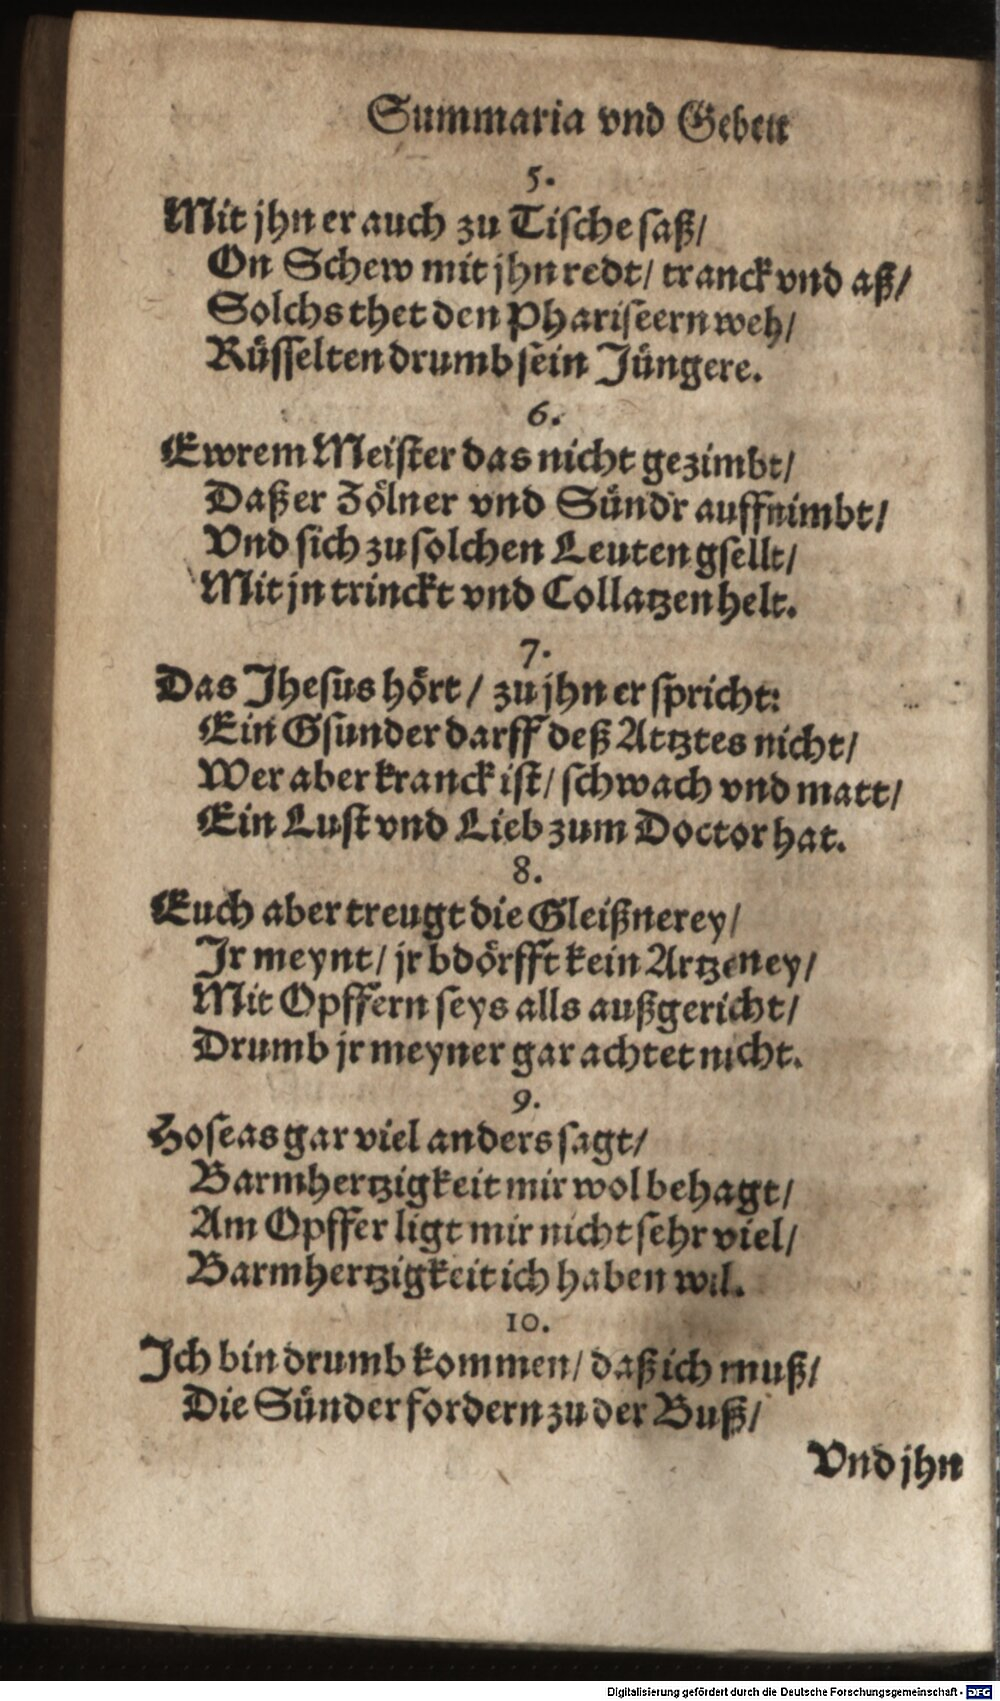 Summaria vnd Gebett
5.
Mit jhn er auch zu Tische saß/
On Schew mit jhn redt/ tranck vnd aß/
Solchs thet den Phariseern weh/
Rüsselten drumb sein Jüngere.
6.
Ewrem Meister das nicht gezimbt/
Daß er Zölner vnd Sündr auffnimbt/
Vnd sich zu solchen Leuten gsellt/
Mit jn trinckt vnd Collatzen helt.
7.
Das Jhesus hört/ zu jhn er spricht:
Ein Gsunder darff deß Artztes nicht/
Wer aber kranck ist/ schwach vnd matt/
Ein Lust vnd Lieb zum Doctor hat.
8.
Euch aber treugt die Gleißnerey/
Jr meynt/ jr bdörfft kein Artzeney/
Mit Opffern seys alls außgericht/
Drumb jr meyner gar achtet nicht.
9.
Hoseas gar viel anders sagt/
Barmhertzigkeit mir wol behagt/
Am Opffer ligt mir nicht sehr viel/
Barmhertzigkeit ich haben wil.
10.
Jch bin drumb kommen/ daß ich muß/
Die Sünder fordern zu der Buß/
Vnd jhn
Digitalisierung gefördert durch die Deutsche Forschungsgemeinschaft - DFG